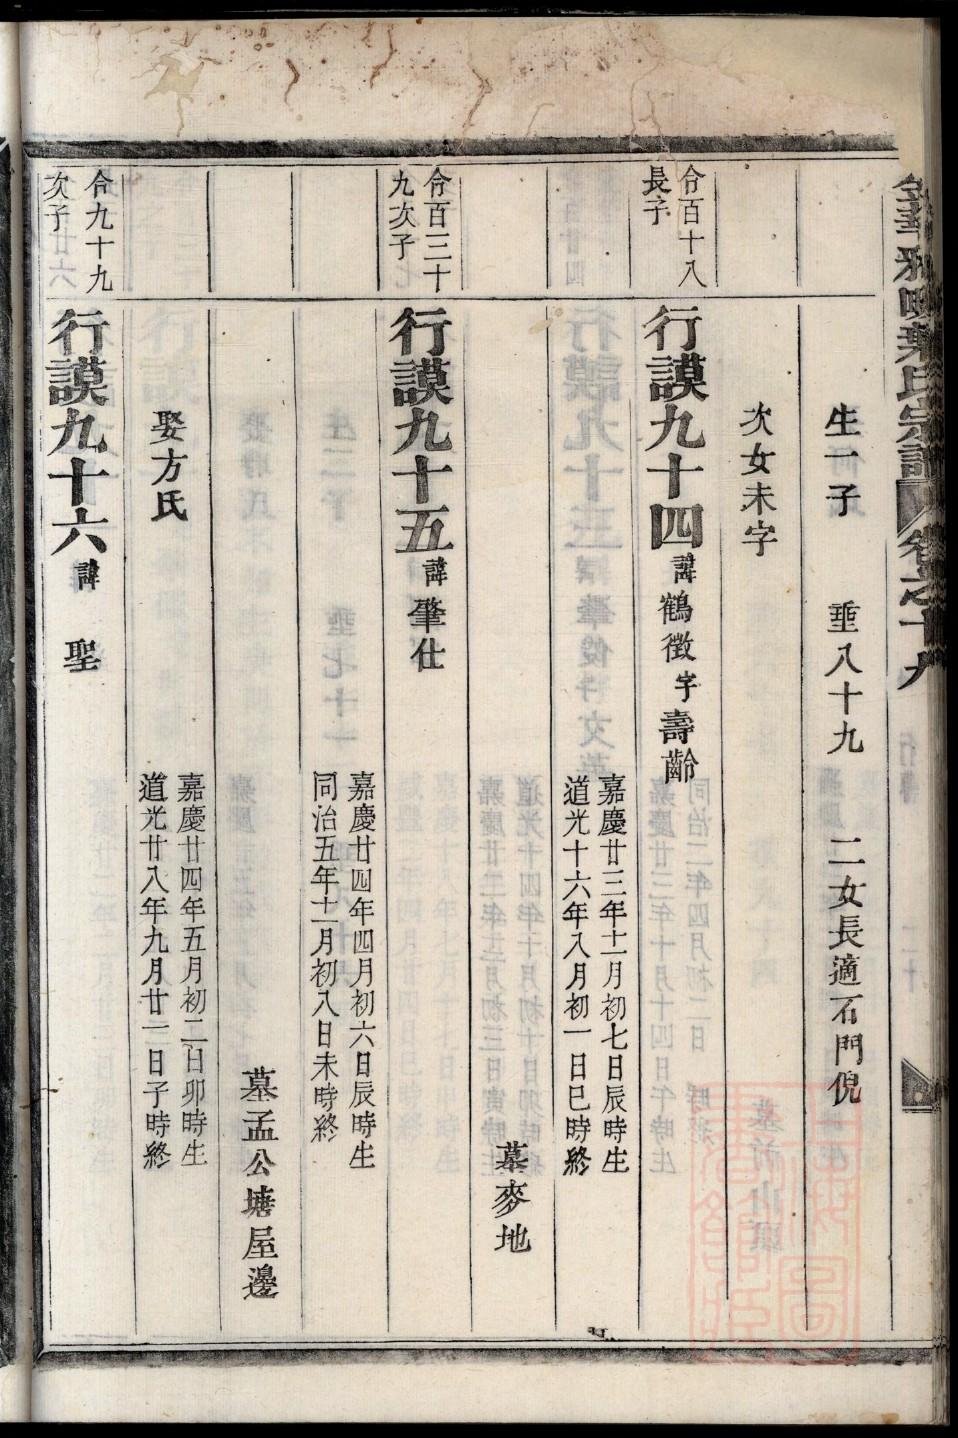 葉氏宗譜 卷之十九
生一子 垂八十九 二女長適石門倪
次女未字
佾百十八
長子
行謨九十四 諱鶴徵字壽齡
嘉慶廿三年十一月初七日辰時生
道光十六年八月初一日巳時終
墓麥地
佾百三十
九次子
行謨九十五 諱肇仕
嘉慶廿四年四月初六日辰時生
同治五年十一月初八日未時終
墓孟公塘屋邊
娶方氏
嘉慶廿四年五月初二日卯時生
道光廿八年九月廿一日子時終
佾九十九
次子
行謨九十六 諱 聖